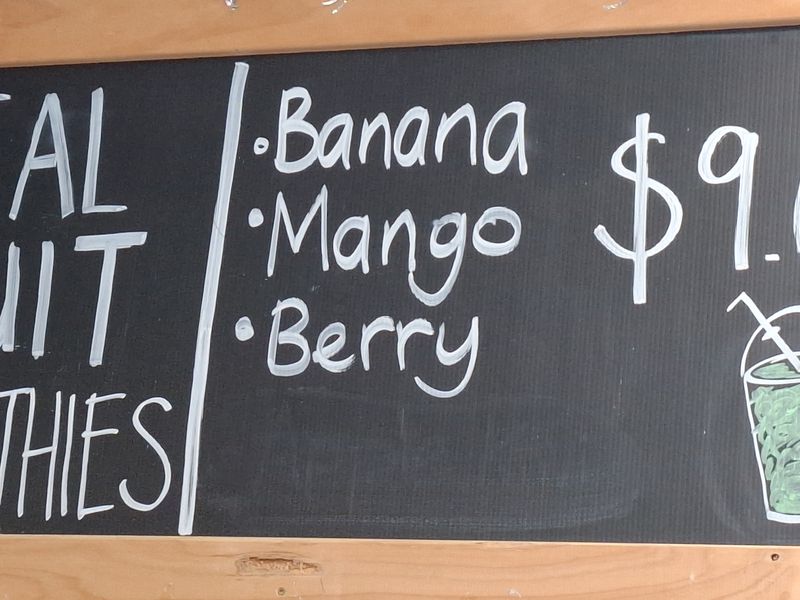 AL
UIT
THIES
• Banana
• Mango
• Berry
$9.